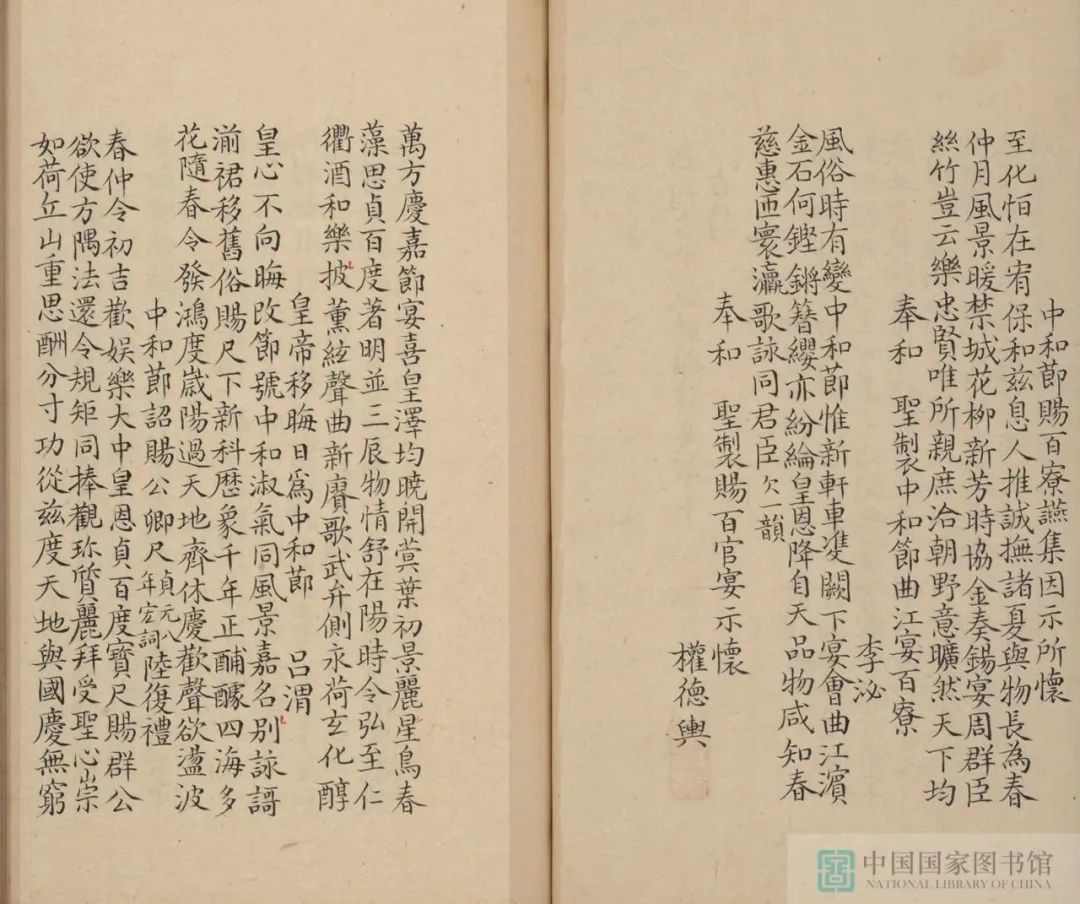 中和節賜百寮讌集因示所懷
至化恒在宥保和茲息人推誠撫諸夏與物長為春
仲月風景暖禁城花柳新芳時協金奏錫宴周群臣
絲竹豈云樂忠賢唯所親庶洽朝野意曠然天下均
奉和 聖製中和節曲江宴百寮
李泌
風俗時有變中和節惟新軒車雙闕下宴會曲江濱
金石何鏗鏘簪纓亦紛綸皇恩降自天品物咸知春
慈惠匝寰瀛歌詠同君臣欠一韻
奉和 聖製賜百官宴示懷
權德輿
萬方慶嘉節宴喜皇澤均曉開蓂葉初景麗星鳥春
藻思貞百度著明並三辰物情舒在陽時令弘至仁
衢酒和樂披薰絃聲曲新賡歌武弁側永荷玄化醇
皇帝移晦日為中和節 呂渭
皇心不向晦改節號中和淑氣同風景嘉名別詠謌
湔裙移舊俗賜尺下新科歷象千年正酺醵四海多
花隨春令發鴻度嵗陽過天地齊休慶歡聲欲盪波
中和節詔賜公卿尺貞元八年宏詞 陸復禮
春仲令初吉歡娛樂大中皇恩貞百度寶尺賜群公
欲使方隅法還令規矩同捧觀珎質麗拜受聖心崇
如荷丘山重思酬分寸功從茲度天地與國慶無窮
中国国家图书馆
NATIONAL LIBRARY OF CHINA